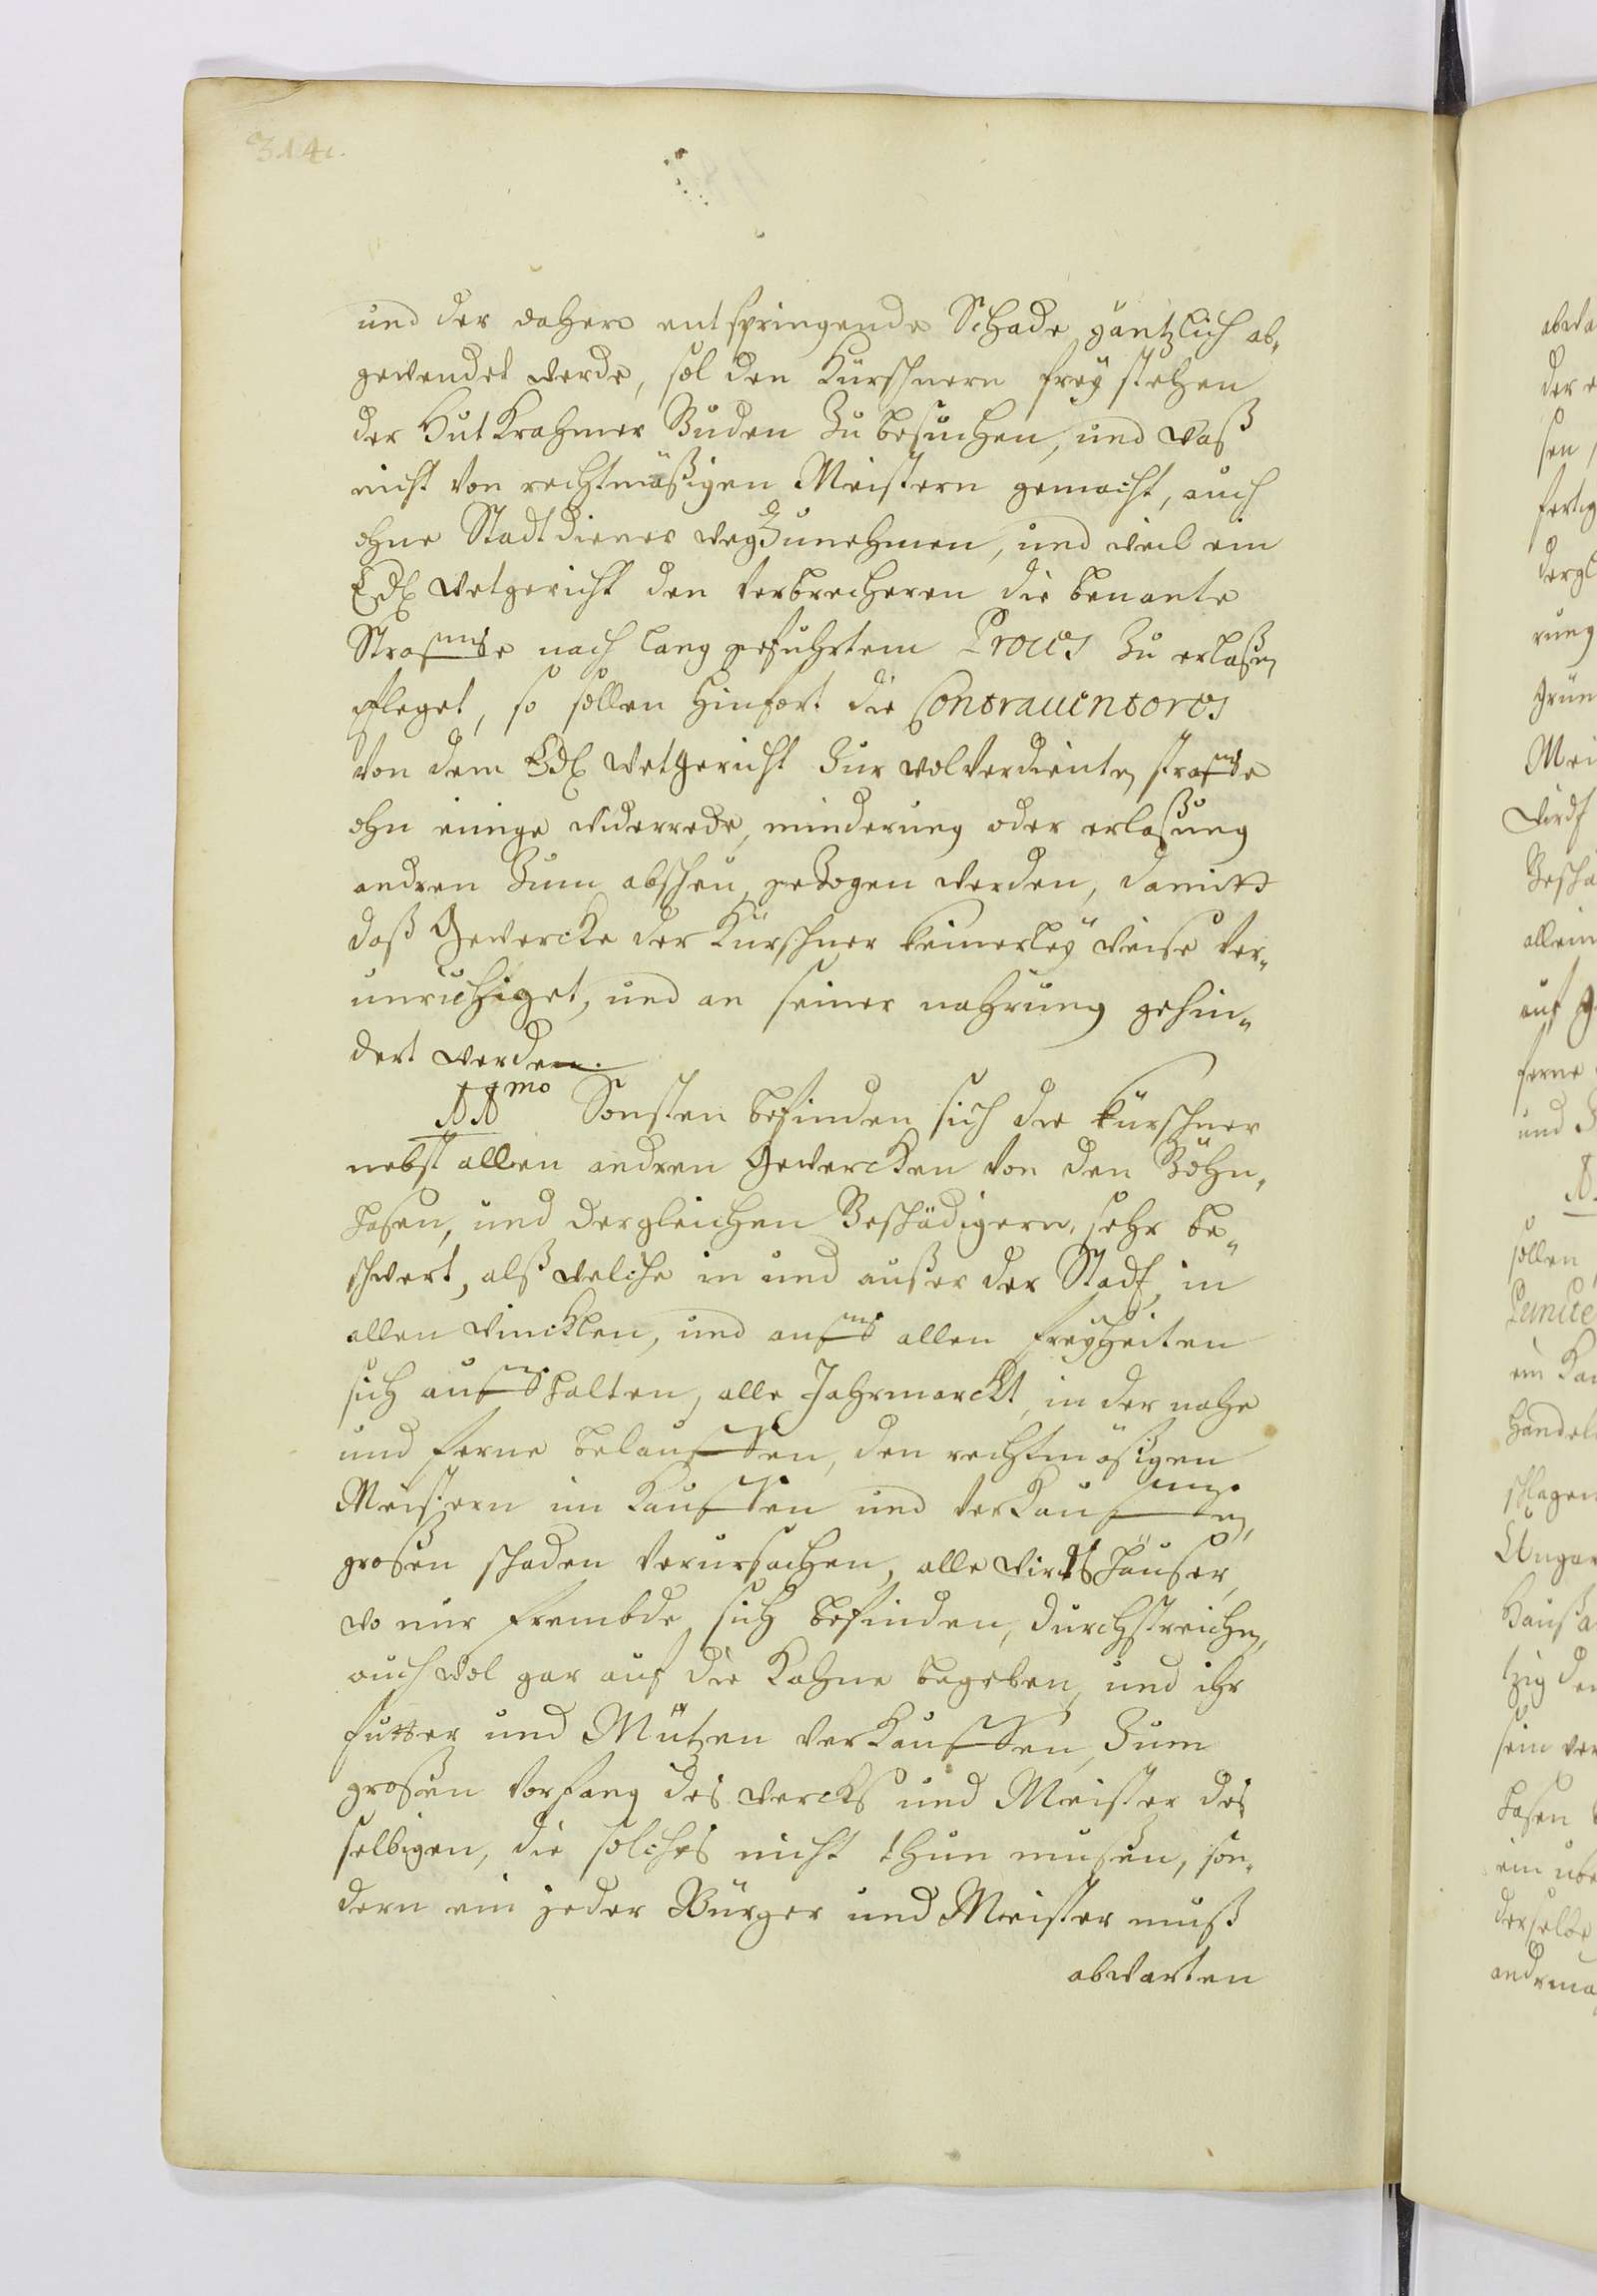 314.
und der dahero entspringende Schade gäntzlich ab-
gewendet werde, sol den Kürschnern frey stehen
der Hut Krahmer Buden Zu besuchen, und waß
nicht von rechtmäßigen Meistern gemacht, auch
ohne Stadtdiener wegZunehmen, und weil ein
Edl Wetgericht den verbrecheren die benante
Straffe nach lang geführtem Proces Zu erlaßen
pfleget, so sollen hinfort die Contrauentores
von dem Edl Wetgericht Zur wolverdienten straffe
ohn einige wiederrede, minderung oder erlaßung
andren Zum abscheu gezogen werden, damitt
daß Gewercke der Kürschner keinerley weise ver-
unruhiget, und an seiner nahrung gehin-
dert werden.
11mo Sonsten befinden sich die Kürschner
nebst allen andren Gewercken von den Böhn-
hasen, und dergleichen Beschädigern, sehr be-
schwert, alß welche in und außer der Stadt, in
allen wincklen, und auff allen freyheiten
sich auffhalten, alle Jahrmarckt, in der nahe
und ferne belauffen, den rechtmäßigen
Meistern im Kauffen und verKauffen,
großen schaden verursachen, alle wirtshäuser,
wo nur frembde sich befinden, durchstreichen,
auch wol gar auf die Kahne begeben, und ihr
futter und Mützen verKauffen, Zum
großen vorfang des wercks und Meister des
selbigen, die solches nicht thun mußen, son-
dern ein jeder Bürger und Meister muß
abwarten